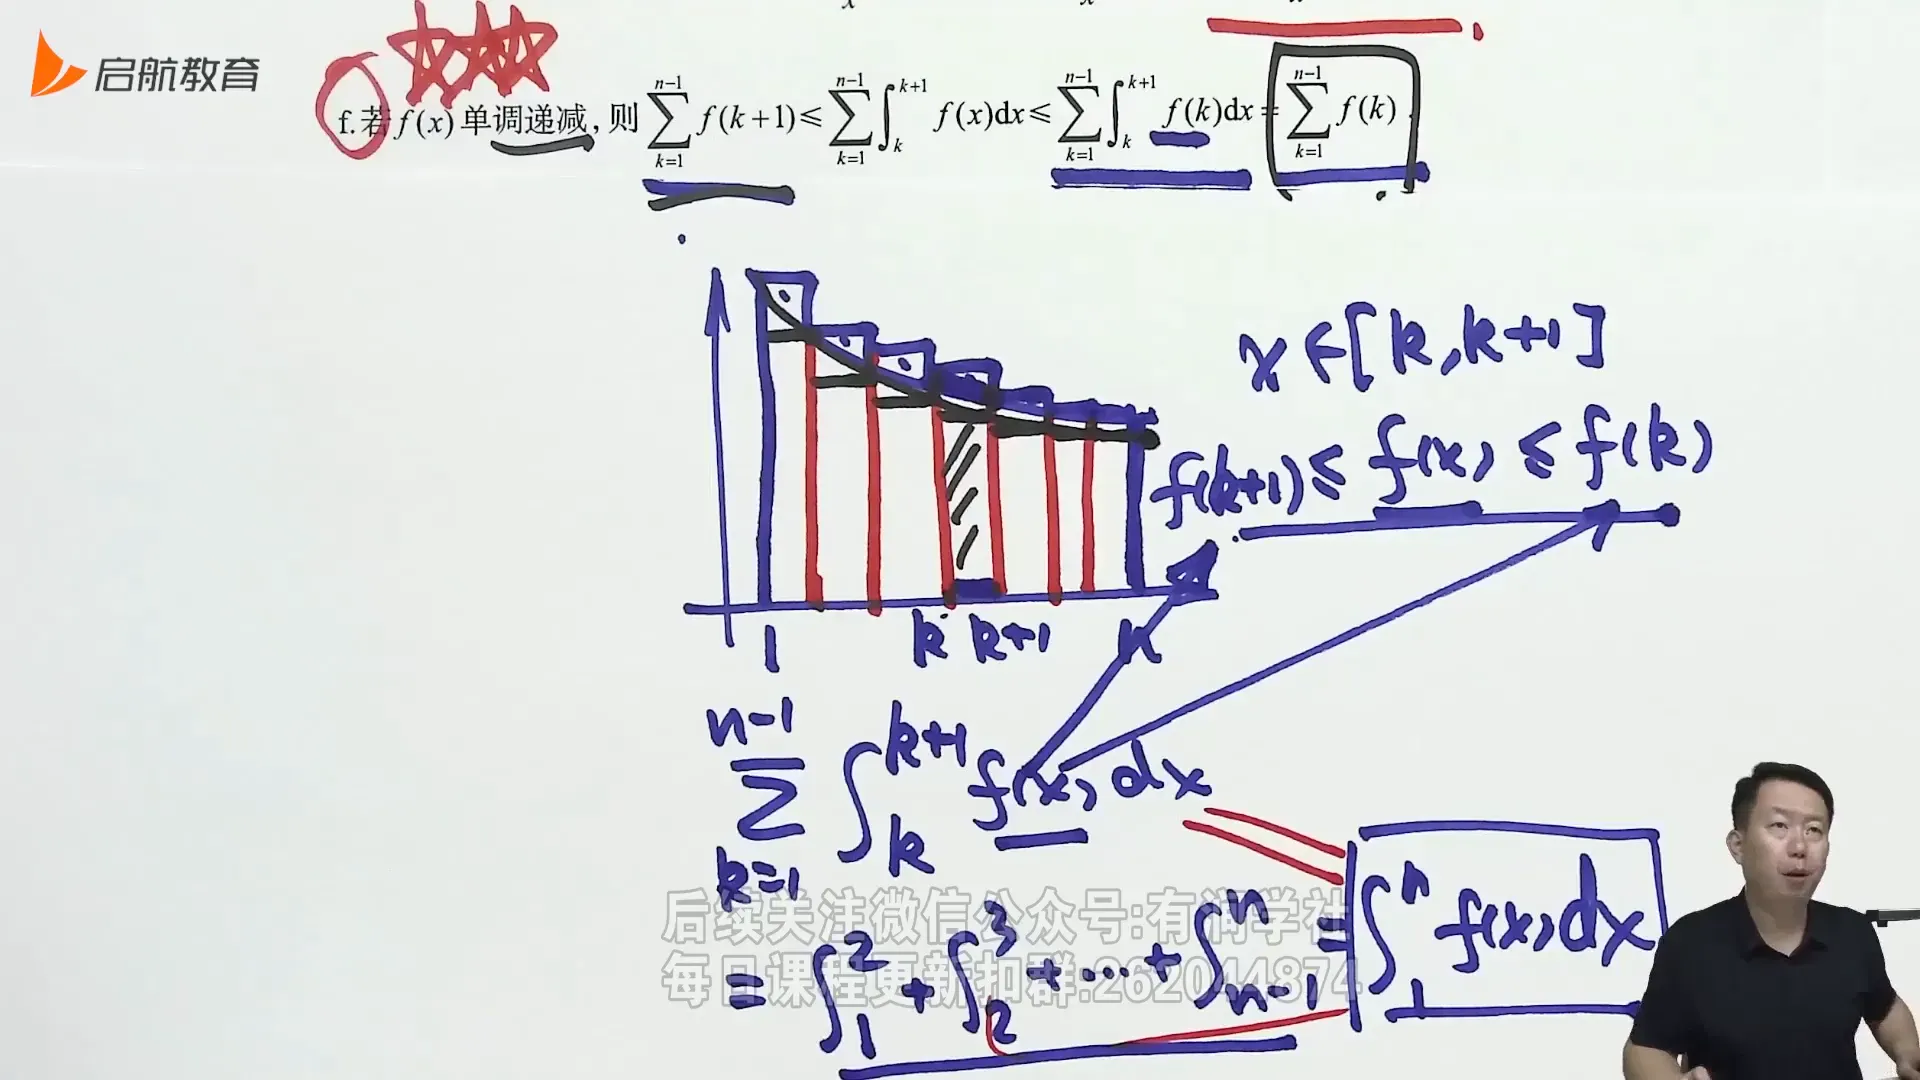 启航教育
f.若f(x)单调递减,则 \sum_{k=1}^{n-1} f(k+1) ≤ \sum_{k=1}^{n-1} \int_{k}^{k+1} f(x)dx ≤ \sum_{k=1}^{n-1} \int_{k}^{k+1} f(k)dx = \sum_{k=1}^{n-1} f(k)
x∈[k,k+1]
f(k+1) ≤ f(x) ≤ f(k)
1 k k+1 n
\sum_{k=1}^{n-1} \int_{k}^{k+1} f(x)dx
= \int_{1}^{2} + \int_{2}^{3} + ... + \int_{n-1}^{n} = \int_{1}^{n} f(x)dx
后续关注微信公众号:有润学社
每日课程更新扣群:262044874